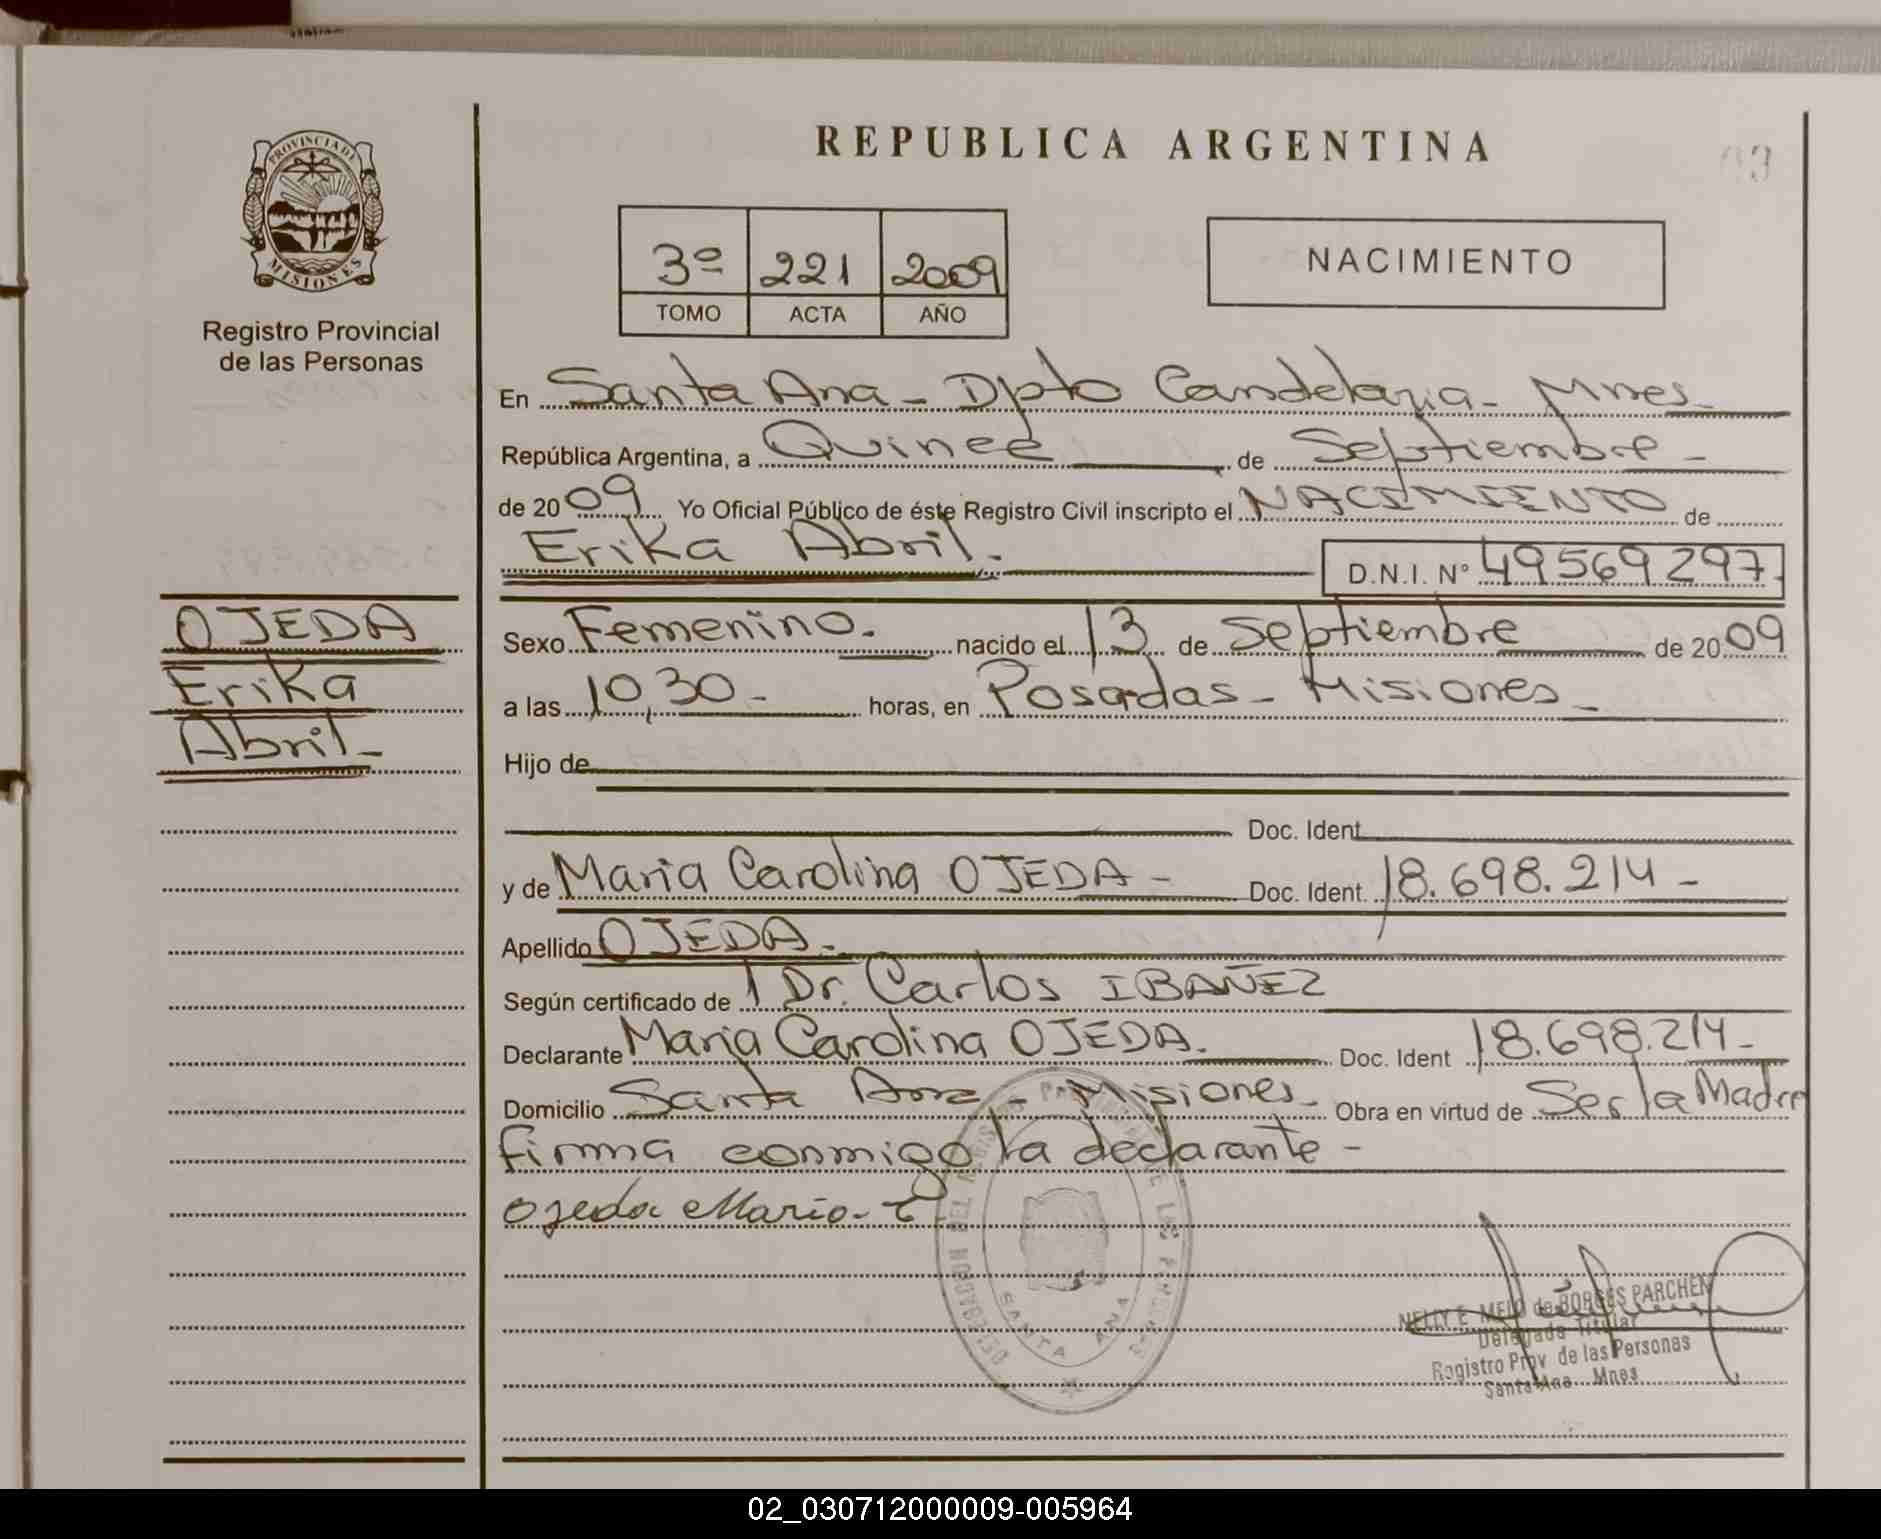 REPUBLICA ARGENTINA
PROVINCIA DE
MISIONES
Registro Provincial
de las Personas
3º 221 2009
TOMO ACTA AÑO
NACIMIENTO
En Santa Ana - Dpto Candelaria - Mnes -
República Argentina, a Quince de Septiembre -
de 2009 Yo Oficial Público de éste Registro Civil inscripto el NACIMIENTO de
Erika Abril. D.N.I. Nº 49569297
OJEDA
Erika
Abril -
Sexo Femenino. nacido el 13 de Septiembre de 2009
a las 10,30 - horas, en Posadas - Misiones -
Hijo de
Doc. Ident.
y de Maria Carolina OJEDA - Doc. Ident. 18.698.214 -
Apellido OJEDA.
Según certificado de Dr. Carlos IBAÑEZ
Declarante Maria Carolina OJEDA. Doc. Ident 18.698.214 -
Domicilio Santa Ana - Misiones - Obra en virtud de Ser la Madre
firma conmigo la declarante -
Ojeda Maria. C
SANTA ANA
NELLY E. MELO de BORGES PARCHEN
Delegada Titular
Registro Prov. de las Personas
Santa Ana Mnes
02_030712000009-005964